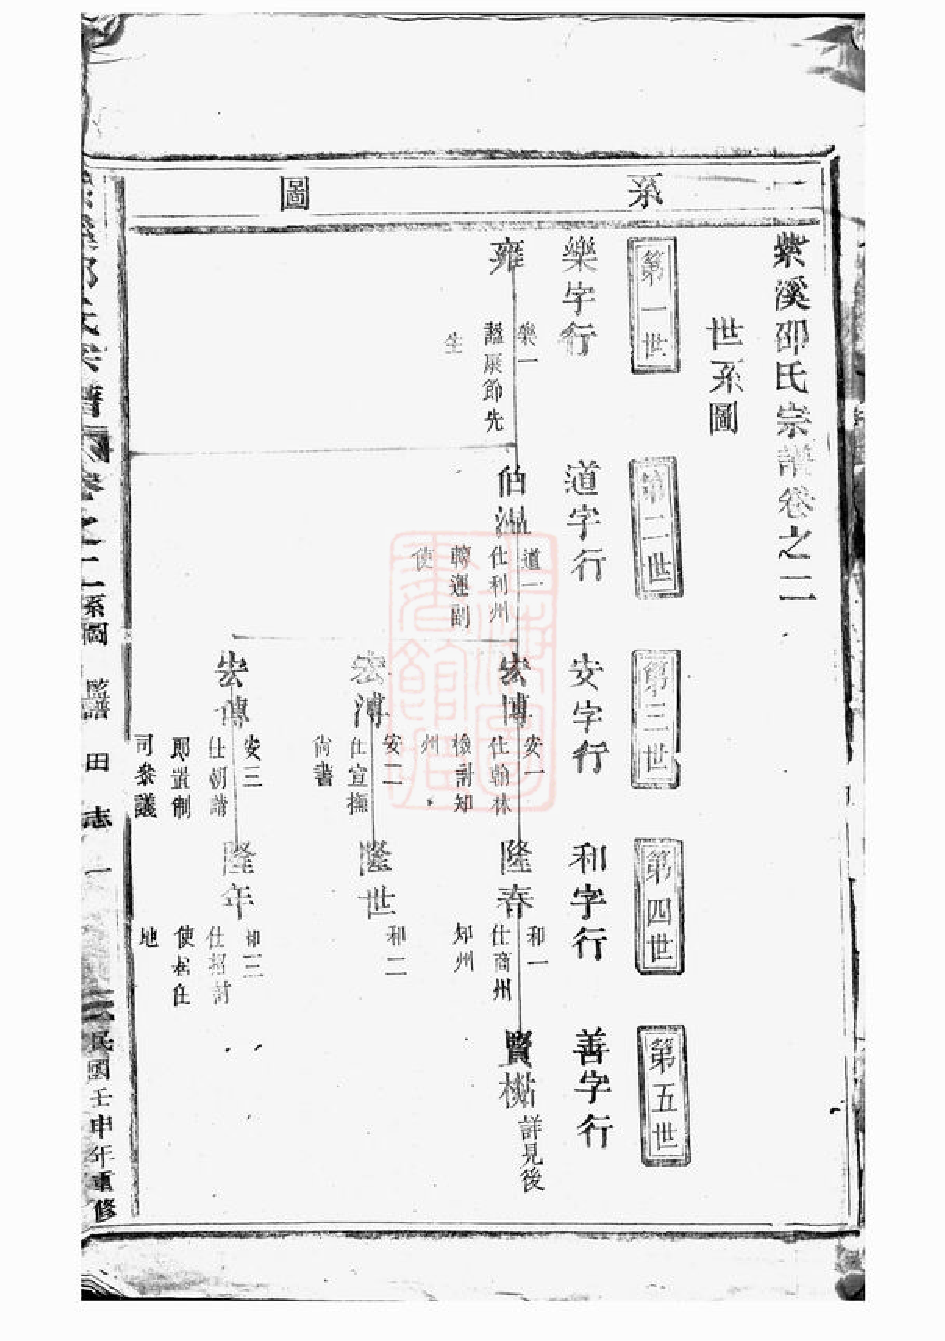 系圖
紫溪邵氏宗譜卷之二
世系圖
第一世
第二世
第三世
第四世
第五世
樂字行
道字行
安字行
和字行
善字行
雍
樂一
謚康節先
生
伯溫
道一
仕利州
轉運副
使
宏博
安一
仕翰林
檢討知
州
隆春
和一
仕商州
知州
賢
詳見後
宏溥
安二
仕宣撫
尚書
隆世
和二
宏傳
安三
仕朝請
郎置制
司參議
隆年
和三
仕招討
使松住
地
紫溪邵氏宗譜 卷之二 系圖 監譜 田志 一 民國壬申年重修